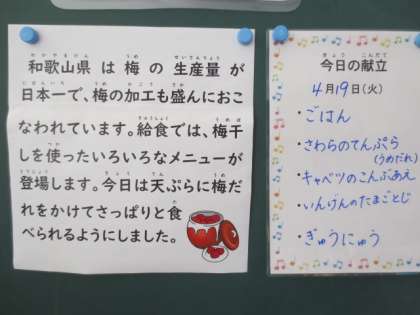 和歌山県は梅の生産量が
日本一で、梅の加工も盛んにおこ
なわれています。給食では、梅干
しを使ったいろいろなメニューが
登場します。今日は天ぷらに梅だ
れをかけてさっぱりと食
べられるようにしました。
今日の献立
4月19日(火)
・ごはん
・さわらのてんぷら
(うめだれ)
・キャベツのこんぶあえ
・いんげんのたまごとじ
・ぎゅうにゅう